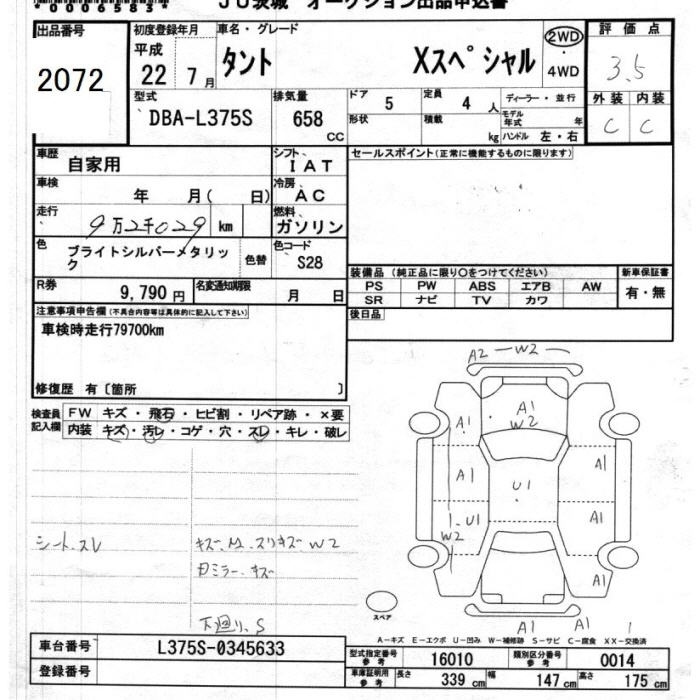 *0006583*
JU茨城 オークション出品申込書
出品番号
2072
初度登録年月
平成
22 7月
車名・グレード
タント Xスペシャル
2WD
・
4WD
評価点
3.5
外装 内装
C C
型式
DBA-L375S
排気量
658
CC
ドア 5
定員 4 人
ディーラー・並行
形状
積載 kg
モデル年式 年
ハンドル 左・右
車歴
自家用
シフト
IAT
セールスポイント(正常に機能するものに限ります)
車検
年 月( 日)
冷房
AC
走行
9万2千029 km
燃料
ガソリン
色
ブライトシルバーメタリック
色替
色コード
S28
装備品(純正品に限り○をつけてください)
新車保証書
PS PW ABS エアB AW
有・無
SR ナビ TV カワ
R券
9,790 円
名変通知期限
月 日
後日品
注意事項申告欄(不具合内容等は具体的に記入して下さい)
車検時走行79700km
修復歴 有〔箇所 〕
検査員記入欄
FW キズ・飛石・ヒビ割・リペア跡・×要
内装 キズ・汚レ・コゲ・穴・スレ・キレ・破レ
シート.スレ
キズ、A1.スリキズ W2
ミラー.キズ
下廻り.S
A2 W2
A1
A1
W2
A1
A1
U1
U1
W2
A1
A1
A1
A1
スペア
A-キズ E-エクボ U-凹み W-補修跡 S-サビ C-腐食 XX-交換済
車台番号
L375S-0345633
登録番号
型式指定番号
参考
16010
類別区分番号
参考
0014
車庫証明用
参考
長さ 339 cm
幅 147 cm
高さ 175 cm